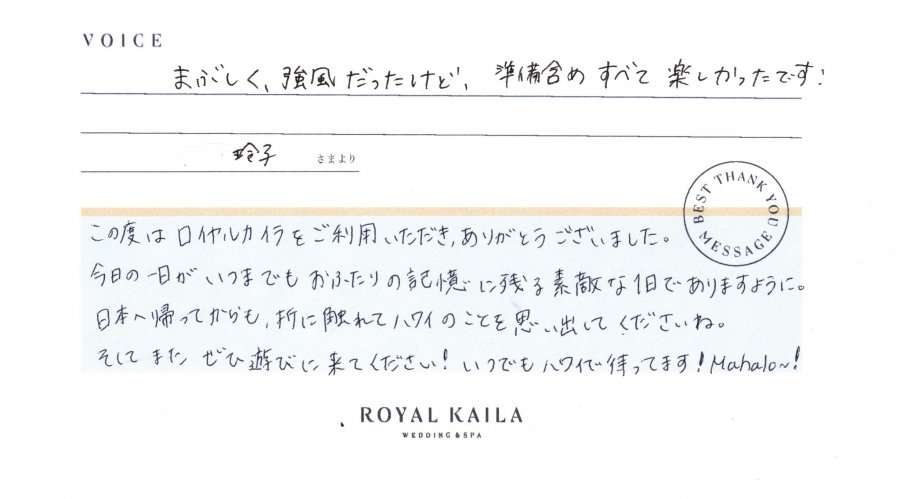 VOICE
まぶしく、強風だったけど、準備含めすべて楽しかったです!
玲子 さまより
BEST THANK YOU MESSAGE
この度はロイヤルカイラをご利用いただき、ありがとうございました。
今日の一日がいつまでもおふたりの記憶に残る素敵な1日でありますように。
日本へ帰ってからも、折に触れてハワイのことを思い出してくださいね。
そしてまたぜひ遊びに来てください!いつでもハワイで待ってます!Mahalo~!
ROYAL KAILA
WEDDING & SPA